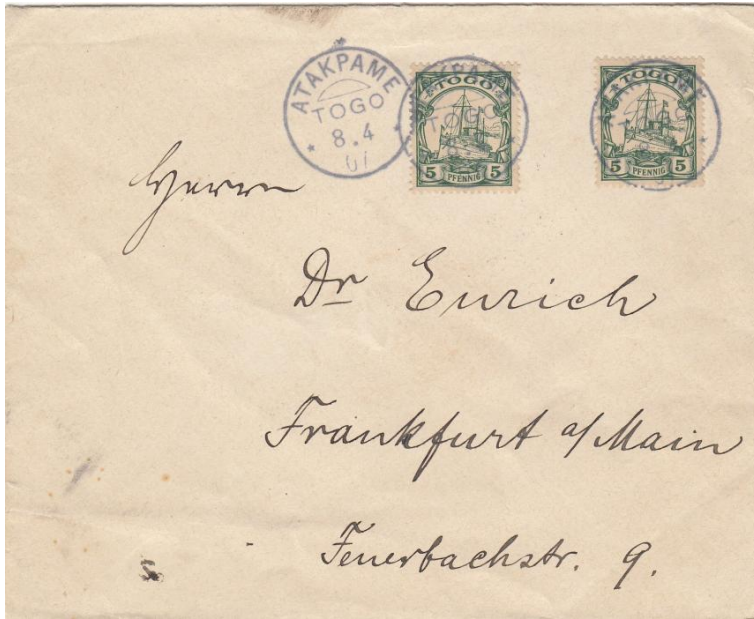 ATAKPAME
TOGO
8.4
07
TOGO
5 PFENNIG 5
TOGO
5 PFENNIG 5
Herrn
Dr Eurich
Frankfurt a/Main
Feuerbachstr. 9.